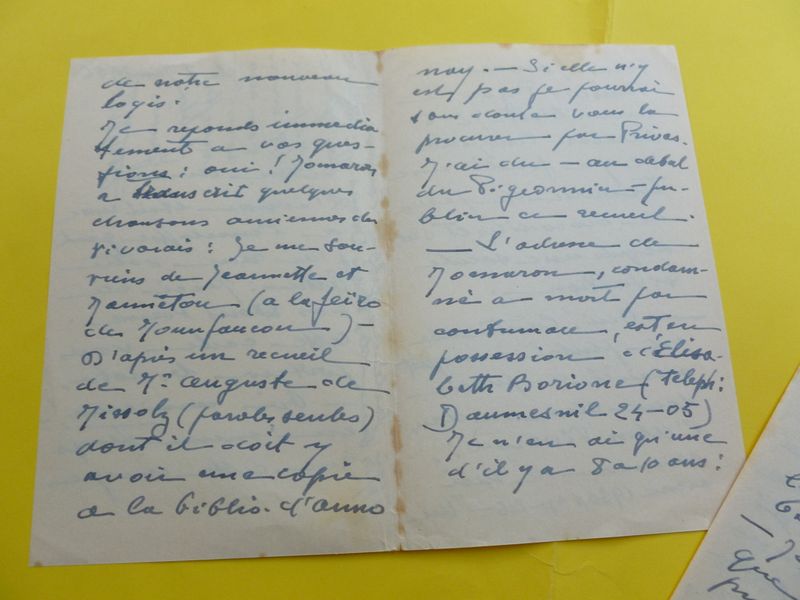 de notre nouveau
logis.
Je reponds immedia
tement a vos ques-
tions: oui! Jomaron
a transcrit quelques
chansons anciennes du
Vivarais: Je me sou-
viens de Jeannette et
Jannëtou (a la feïro
de Mounfaucon) -
D'après un recueil
de Mr auguste de
Missolz (paroles seules)
dont il doit y
avoir une copie
a la biblio. d'anno
nay. - Si elle n'y
est pas je pourrai
sans doute vous la
procurer par Privas.
J'ai du - au debut
du Pigeonnier - pu-
blier ce recueil.
— L'adresse de
Jomaron, condam-
né a mort par
contumace, est en
possession d'Elisa-
beth Borione (teleph:
Daumesnil 24-05)
Je n'en ai qu'une
d'il y a 8 a 10 ans:
que